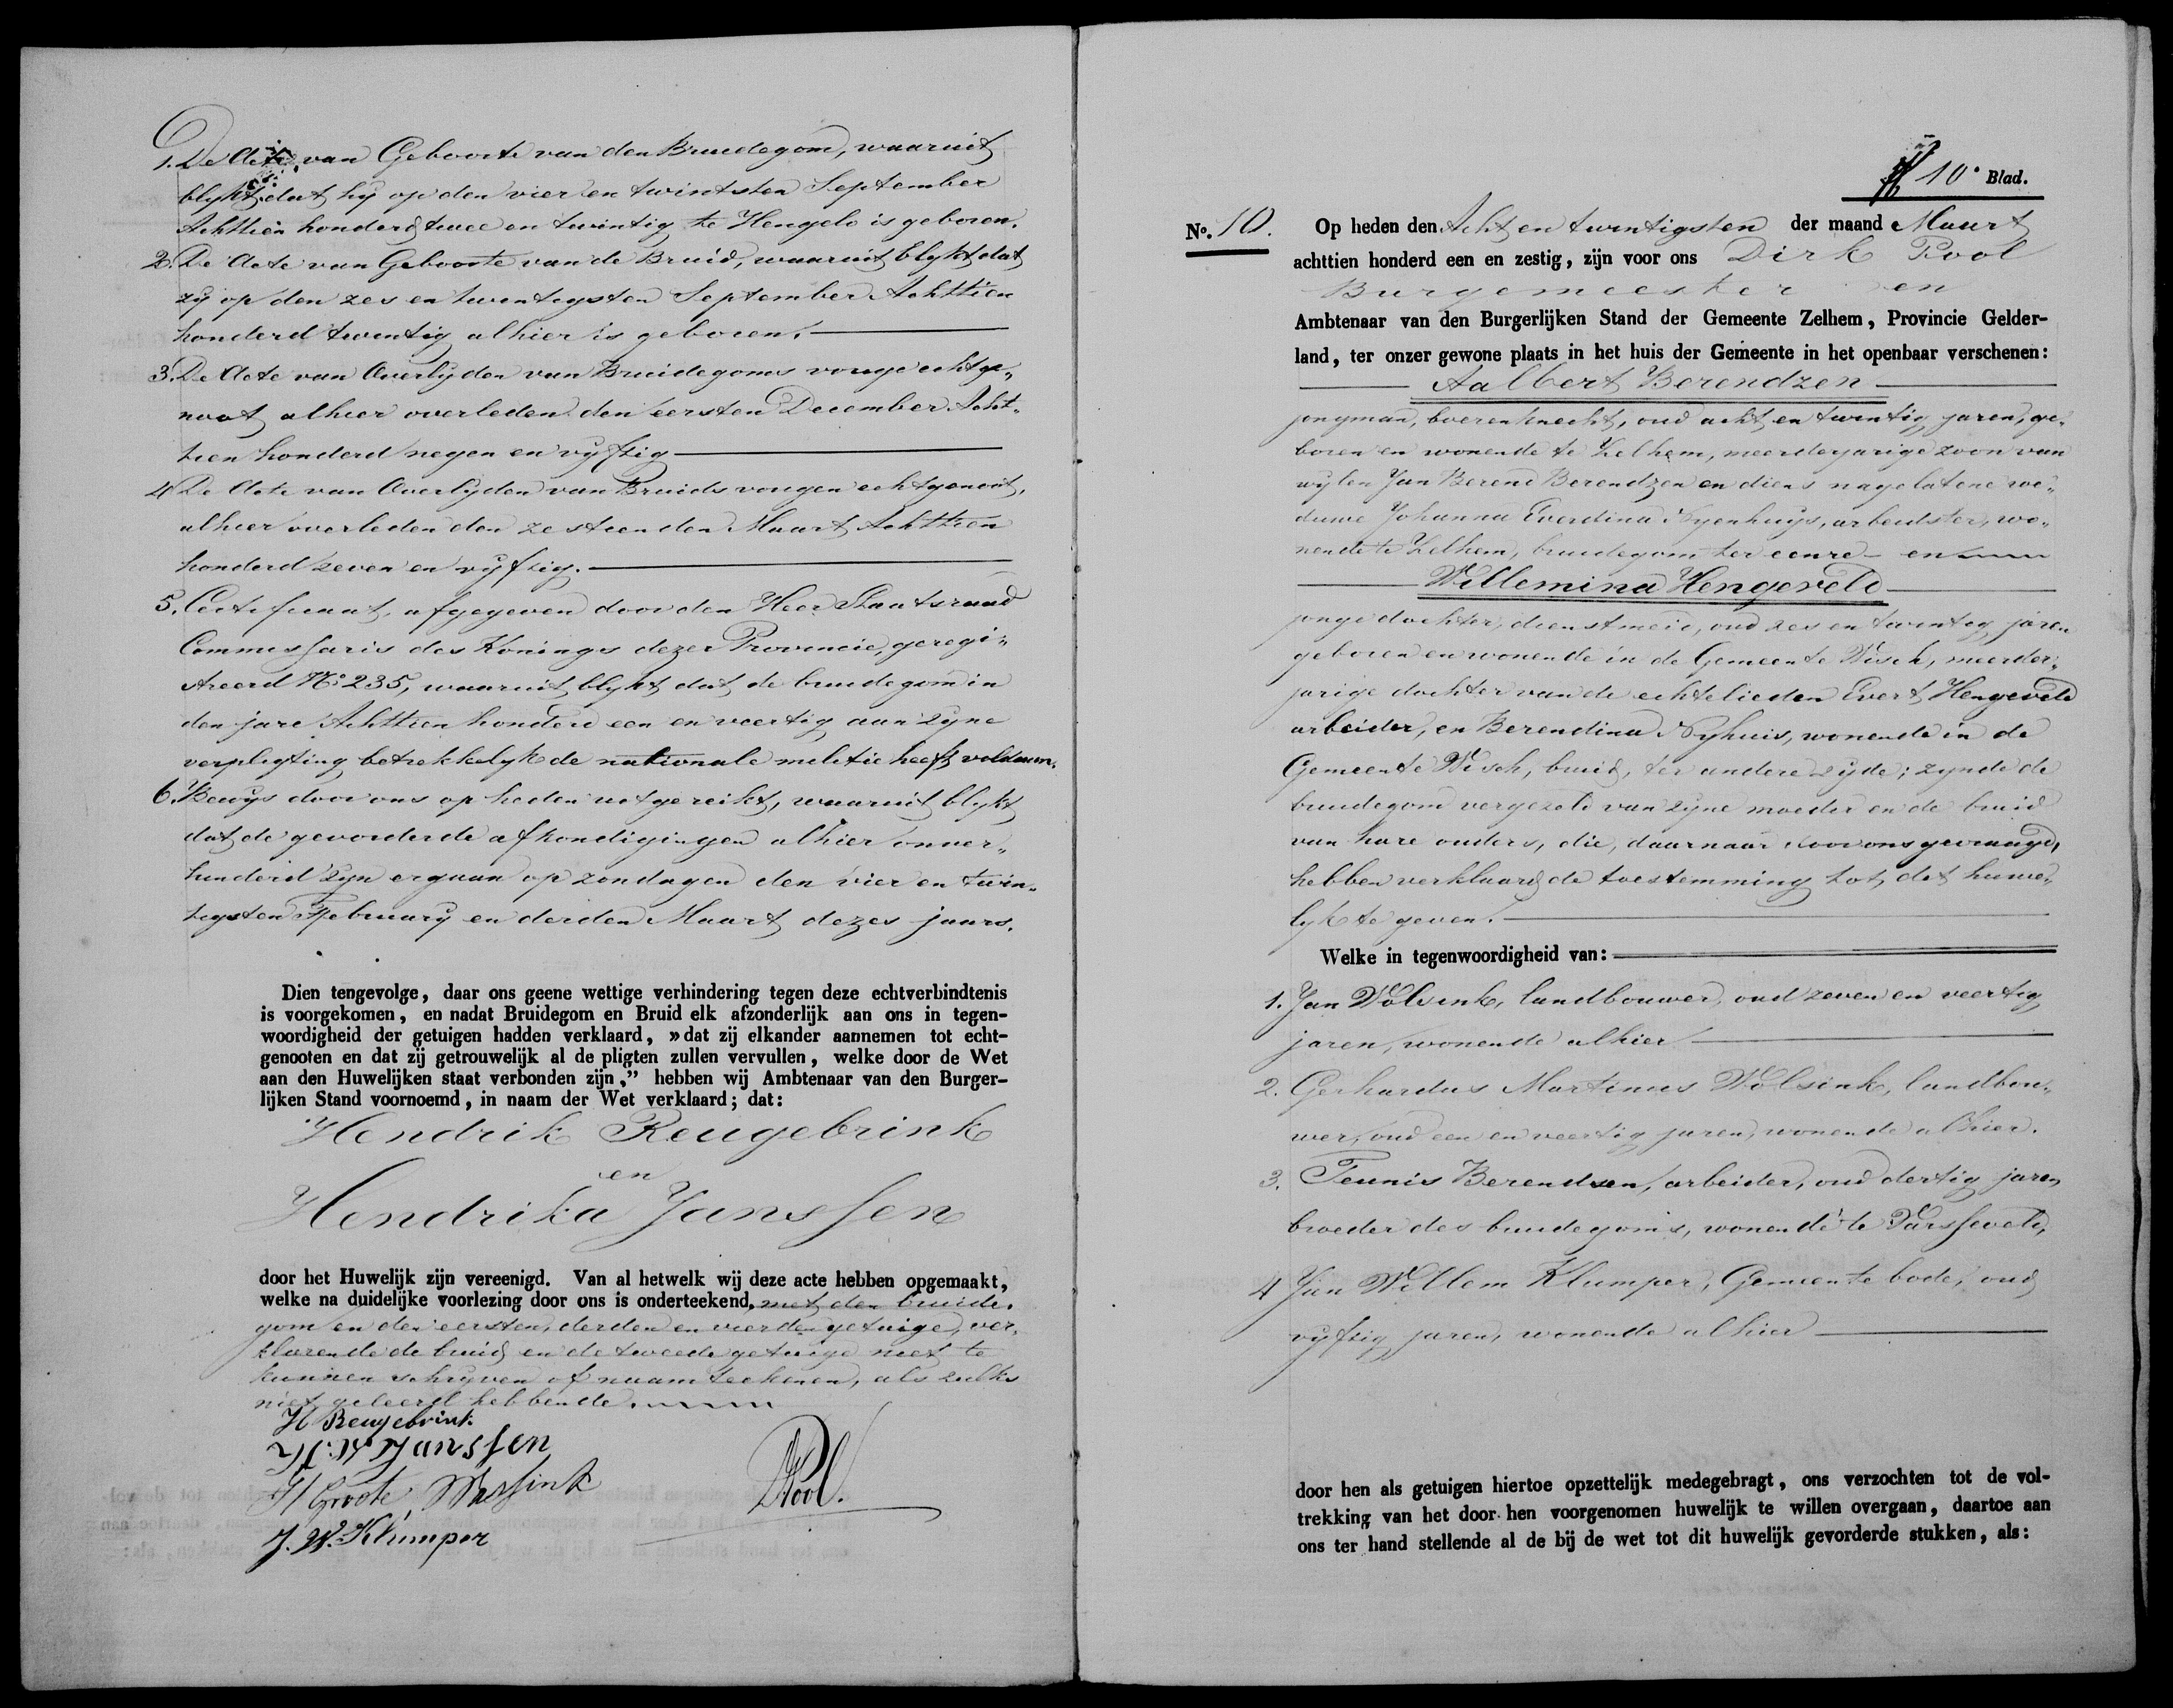 1. De Acte van Geboorte van den Bruidegom, waaruit
blykt, dat hy op den vier en twintsten September
Achttien honderd twee en twintig te Hengelo is geboren.
2. De Acte van Geboorte van de Bruid, waaruit blykt dat
zy op den zes en twentigsten September Achttien
honderd twentig alhier is geboren.
3. De Acte van Overlyden van Bruidegoms vorige echtge„
noot alhier overleden den eersten December Acht„
tien honderd negen en vyftig
4 De Acte van Overlyden van Bruids vorigen echtgenoot,
alhier overleden den zestienden Maart Achttien
honderd zeven en vyftig.
5. Certificaat, afgegeven door den Heer Staatsraad
Commissaris des Konings dezer Provincie, geregi„
streerd No. 235, waaruit blykt dat de bruidegom in
den jare Achttien honderd een en veertig aan zyne
verpligting betrekkelyk de nationale militie heeft voldaan.
6. Bewys door ons op heden uitgereikt, waaruit blykt
dat de gevorderde afkondigingen alhier onver„
hinderd zyn ergaan op zondagen den vier en twin„
tigsten February en derden Maart dezes jaars.
Dien tengevolge, daar ons geene wettige verhindering tegen deze echtverbindtenis
is voorgekomen, en nadat Bruidegom en Bruid elk afzonderlijk aan ons in tegen-
woordigheid der getuigen hadden verklaard, »dat zij elkander aannemen tot echt-
genooten en dat zij getrouwelijk al de pligten zullen vervullen, welke door de Wet
aan den Huwelijken staat verbonden zijn," hebben wij Ambtenaar van den Burger-
lijken Stand voornoemd, in naam der Wet verklaard; dat:
Hendrik Reugebrink
en
Hendrika Janssen
door het Huwelijk zijn vereenigd. Van al hetwelk wij deze acte hebben opgemaakt,
welke na duidelijke voorlezing door ons is onderteekend, met den bruide„
gom en den eersten, derden en vierden getuige, ver„
klarende de bruid en de tweede getuige niet te
kunnen schryven of naamteekenen, als zulks
niet geleerd hebbende.
H Reugebrink
H. W Janssen
H Groote Wassink
DPool.
J. W. Klumper
10e Blad.
No. 10. Op heden den Acht en twintigsten der maand Maart
achttien honderd een en zestig, zijn voor ons Dirk Pool
Burgemeester en
Ambtenaar van den Burgerlijken Stand der Gemeente Zelhem, Provincie Gelder-
land, ter onzer gewone plaats in het huis der Gemeente in het openbaar verschenen:
Aalbert Berendzen
jongman, boerenknecht, oud acht en twintig jaren, ge„
boren en wonende te Zelhem, meerderjarige zoon van
wylen Jan Berend Berendzen en diens nagelatene we„
duwe Johanna Everdina Nyenhuys, arbeidster, wo„
nende te Zelhem, bruidegom, ter eenre en
Willemina Hengeveld
jonge dochter, dienstmeid, oud zes en twentig jaren
geboren en wonende in de Gemeente Wisch, meerder„
jarige dochter van de echtelieden Evert Hengeveld
arbeider, en Berendina Nyhuis, wonende in de
Gemeente Wisch, bruid, ter andere zyde; zynde de
bruidegom vergezeld van zyne moeder en de bruid
van hare ouders, die, daarnaar door ons gevraagd,
hebben verklaard de toestemming tot dit huwe„
lyk te geven.
Welke in tegenwoordigheid van:
1. Jan Wolsink, landbouwer, oud zeven en veertig
jaren, wonende alhier
2. Gerhardus Martinus Wolsink, landbou„
wer, oud een en veertig jaren, wonende alhier.
3. Teunis Berendsen, arbeider, oud dertig jaren
broeder des bruidegoms, wonende te Varsseveld,
4 Jan Willem Klumper, Gemeente bode, oud
vyftig jaren, wonende alhier
door hen als getuigen hiertoe opzettelijk medegebragt, ons verzochten tot de vol-
trekking van het door hen voorgenomen huwelijk te willen overgaan, daartoe aan
ons ter hand stellende al de bij de wet tot dit huwelijk gevorderde stukken, als: